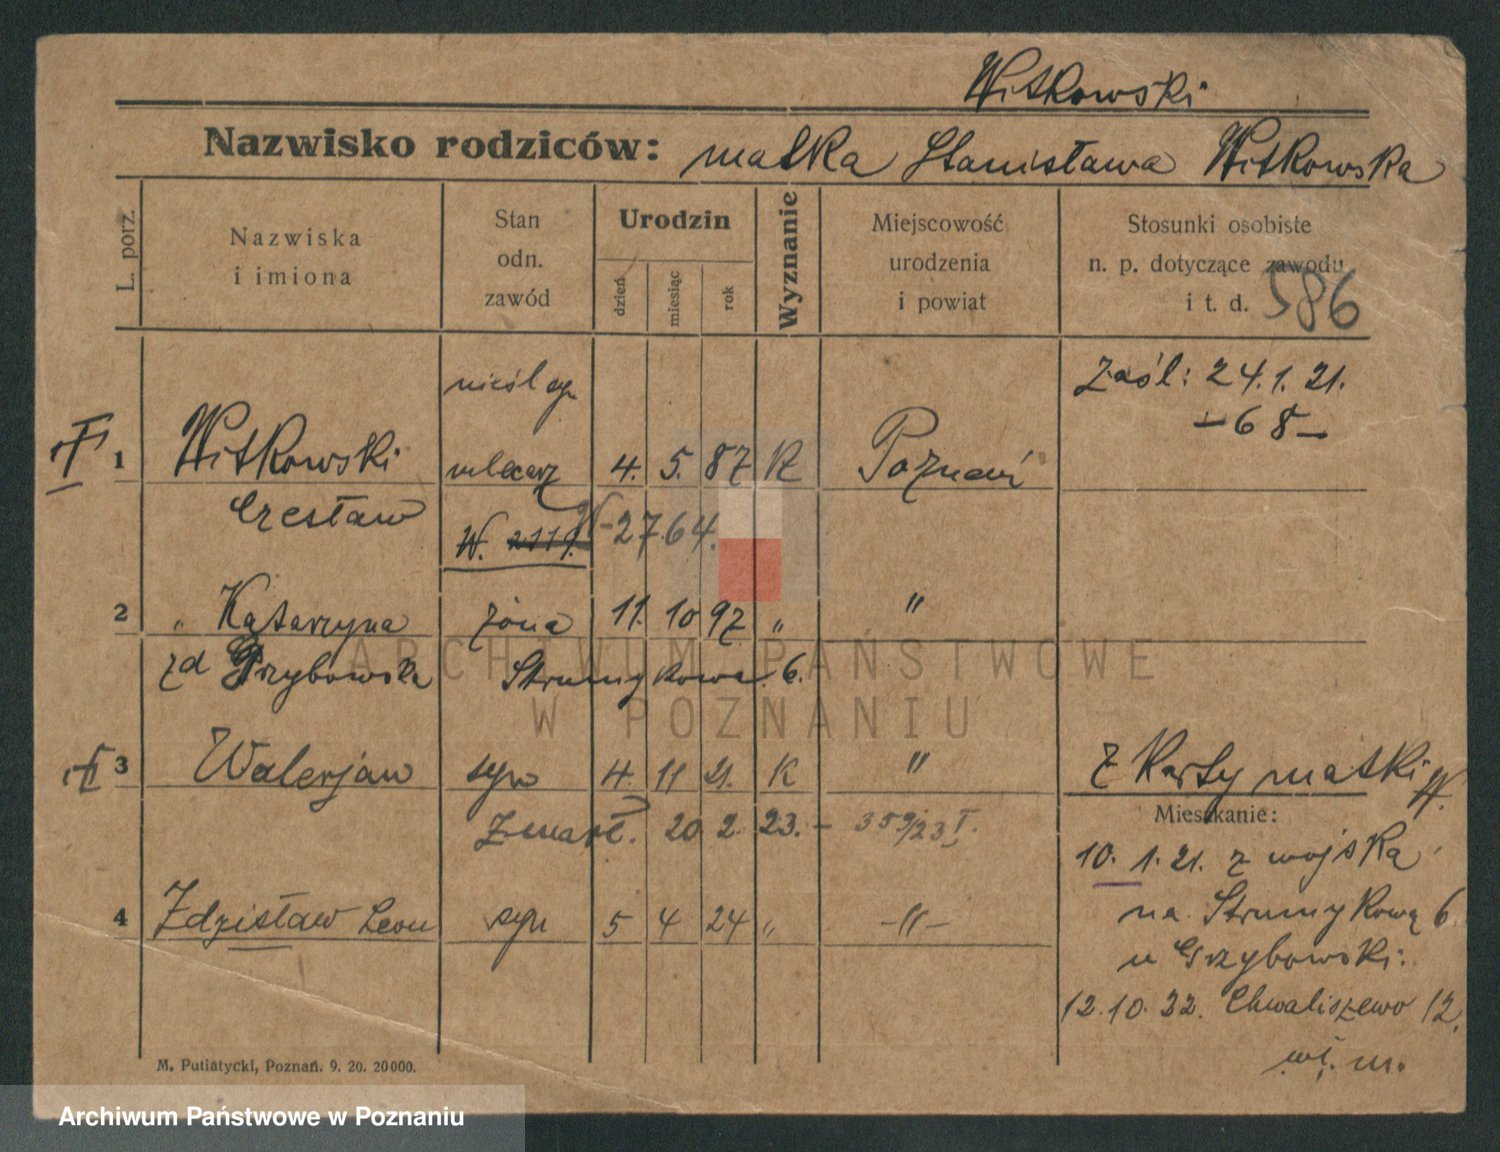 Witkowski
Nazwisko rodziców: matka Stanisława Witkowska
L. porz.
Nazwiska
i imiona
Stan
odn.
zawód
Urodzin
dzień
miesiąc
rok
Wyznanie
Miejscowość
urodzenia
i powiat
Stosunki osobiste
n. p. dotyczące zawodu
i t. d.
586
nieśl syn
Zaśl: 24.1.21.
-68-
1 Witkowski mleczarz 4. 5. 87 K Poznań
Czesław
W. 2119. W-2764.
2 " Katarzyna żona 11. 10 97 " "
zd Grzybowska Strumykowa 6.
3 Walerjan syn 4. 11 21. K " z Karty matki W.
Zmarł. 20 2. 23. - 359/23 I.
Mieszkanie:
10. 1. 21. z wojska
na Strumykową 6.
u Grzybowski:
4 Zdzisław Leon syn 5 4 24 " -"-
12.10.22. Chwaliszewo 12.
wł. m.
M. Putiatycki, Poznań. 9. 20. 20000.
ARCHIWUM PAŃSTWOWE
W POZNANIU
Archiwum Państwowe w Poznaniu